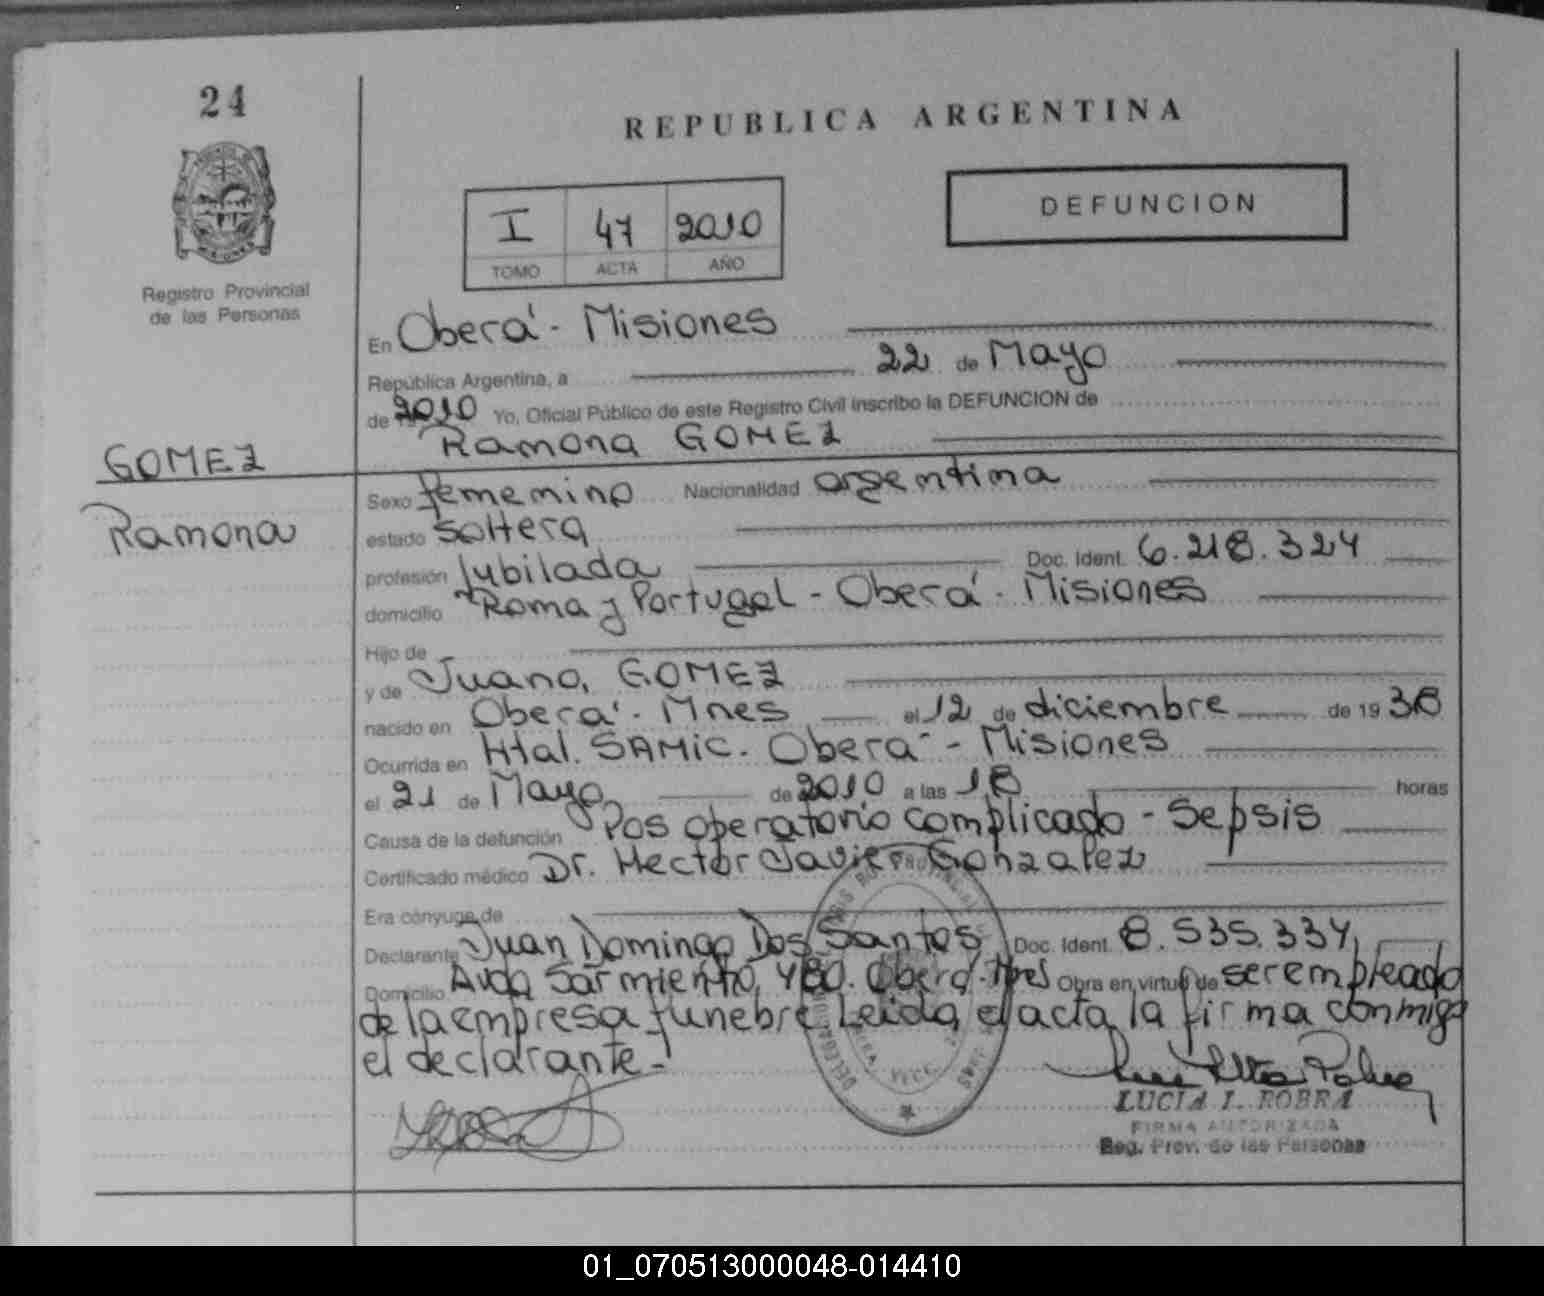 24
REPUBLICA ARGENTINA
I 47 2010
TOMO ACTA AÑO
DEFUNCION
Registro Provincial
de las Personas
En Oberá - Misiones
República Argentina, a 22 de Mayo
de 2010 Yo, Oficial Público de este Registro Civil inscribo la DEFUNCION de
Ramona GOMEZ
GOMEZ
Ramona
Sexo femenino Nacionalidad argentina
estado soltera
profesión Jubilada Doc. Ident. 6.218.324
domicilio Roma y Portugal - Oberá - Misiones
Hijo de
y de Juana, GOMEZ
nacido en Oberá - Mnes el 12 de diciembre de 1938
Ocurrida en Htal. SAMIC. Oberá - Misiones
el 21 de Mayo de 2010 a las 18 horas
Causa de la defunción Pos operatorio complicado - Sepsis
Certificado médico Dr. Hector Javier Gonzalez
Era cónyuge de
Declarante Juan Domingo Dos Santos Doc. Ident. 8.535.334,
Domicilio Avda Sarmiento, 480. Oberá - Mnes Obra en virtud de ser empleado
de la empresa fúnebre Leida el acta, la firma conmigo
el declarante.-
LUCIA I. ROBRA
FIRMA AUTORIZADA
Reg. Prov. de las Personas
01_070513000048-014410